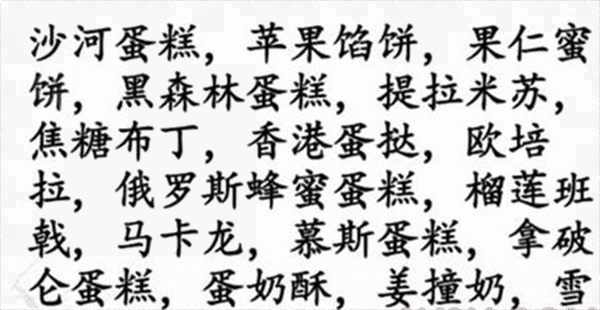 沙河蛋糕，苹果馅饼，果仁蜜
饼，黑森林蛋糕，提拉米苏，
焦糖布丁，香港蛋挞，欧培
拉，俄罗斯蜂蜜蛋糕，榴莲班
戟，马卡龙，慕斯蛋糕，拿破
仑蛋糕，蛋奶酥，姜撞奶，雪